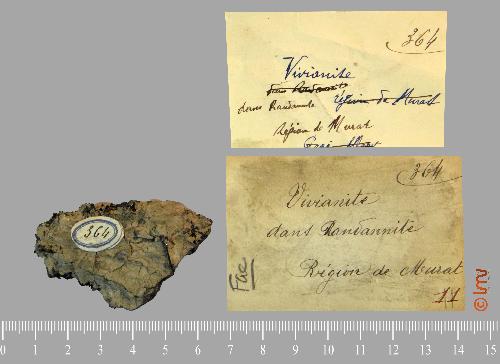 364
Vivianite
dans Randannite
Région de Murat
364
Vivianite
dans Randannite
Région de Murat
11
Fac
364
© lmv
0 1 2 3 4 5 6 7 8 9 10 11 12 13 14 15